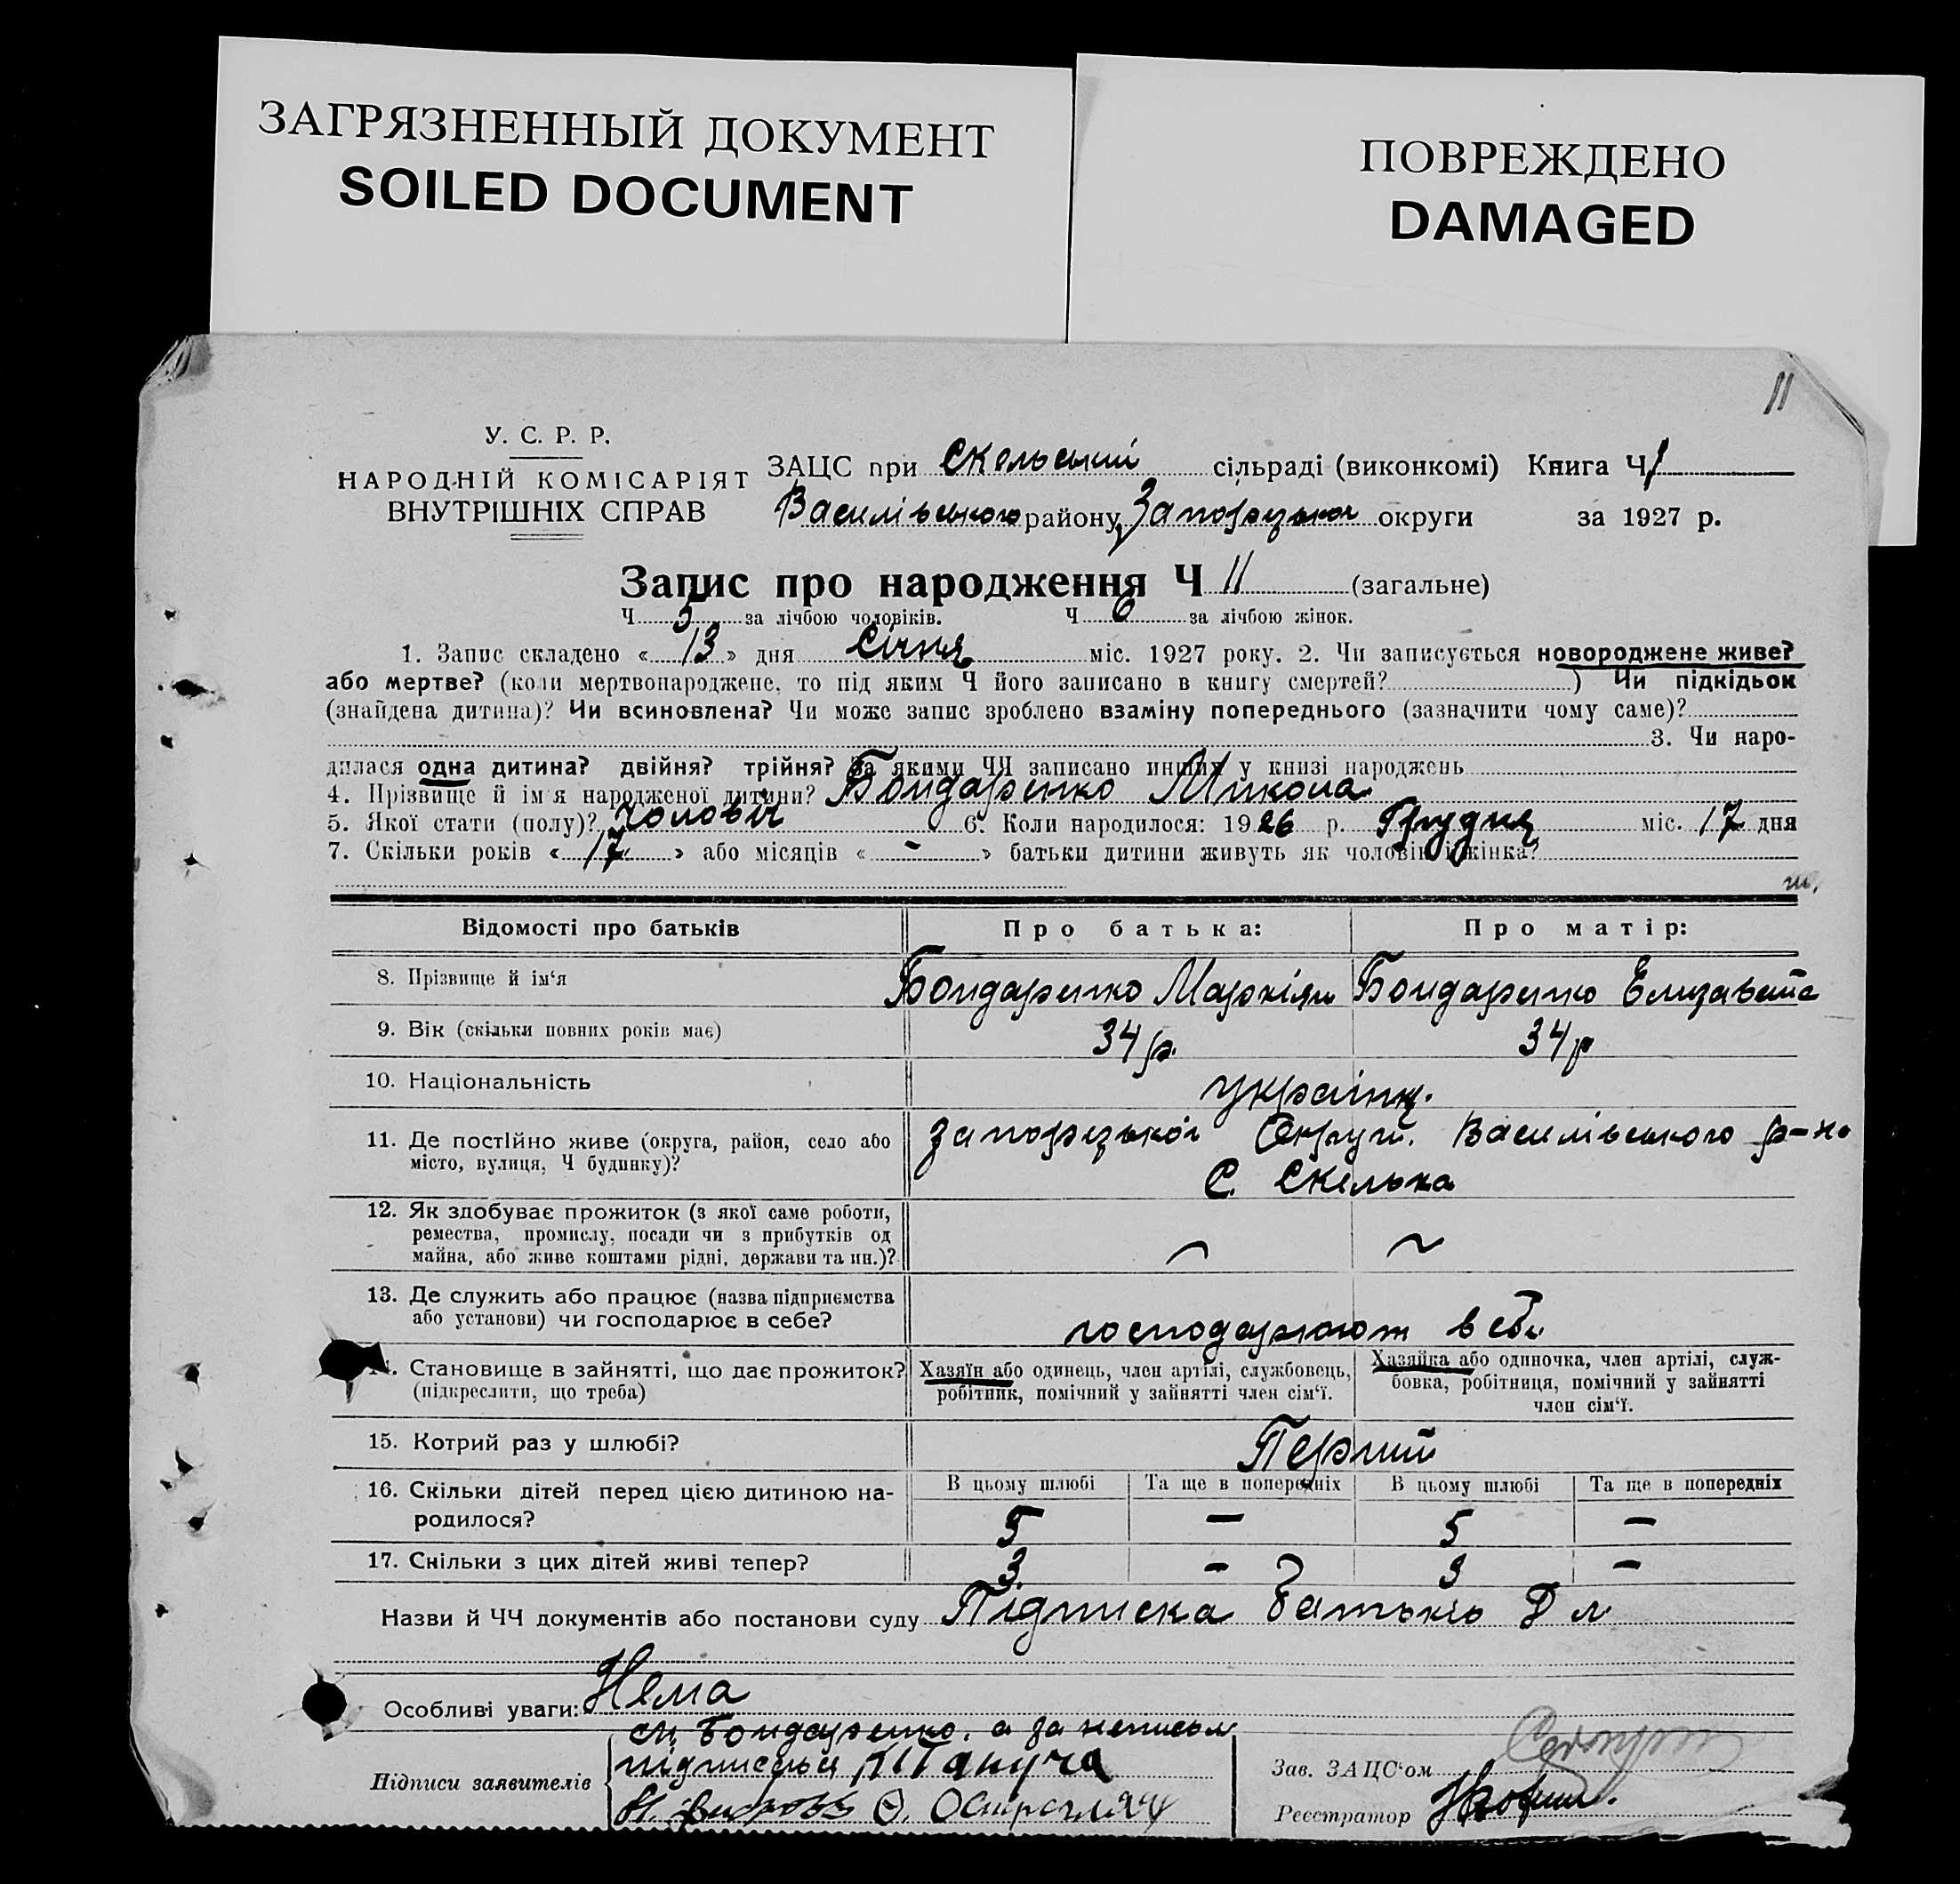 ЗАГРЯЗНЕННЫЙ ДОКУМЕНТ
SOILED DOCUMENT
ПОВРЕЖДЕНО
DAMAGED
11
У. С. Р. Р.
НАРОДНІЙ КОМІСАРІЯТ
ВНУТРІШНІХ СПРАВ
ЗАЦС при Скельський сільраді (виконкомі) Книга Ч 1
Василівського району Запорізької округи за 1927 р.
Запис про народження Ч 11 (загальне)
Ч 5 за лічбою чоловіків. Ч 6 за лічбою жінок.
1. Запис складено « 13 » дня Січня міс. 1927 року. 2. Чи записується новороджене живе?
або мертве? (коли мертвонароджене, то під яким Ч його записано в книгу смертей? ) Чи підкідьок
(знайдена дитина)? Чи всиновлена? Чи може запис зроблено взаміну попереднього (зазначити чому саме)?
3. Чи наро-
дилася одна дитина? двійня? трійня? За якими ЧЧ записано инших у книзі народжень
4. Прізвище й ім'я народженої дитини? Бондаренко Микола
5. Якої стати (полу)? чоловіч 6. Коли народилося: 1926 р. Грудня міс. 17 дня
7. Скільки років « 17 » або місяців « - » батьки дитини живуть як чоловік і жінка?
Відомості про батьків
Про батька:
Про матір:
8. Прізвище й ім'я
Бондаренко Маркіян
Бондаренко Елизавета
9. Вік (скільки повних років має)
34 р.
34 р
10. Національність
україн.
11. Де постійно живе (округа, район, село або
місто, вулиця, Ч будинку)?
Запорізької Округи. Василівського р-на
С. Скелька
12. Як здобуває прожиток (з якої саме роботи,
ремества, промислу, посади чи з прибутків од
майна, або живе коштами рідні, держави та ин.)?
13. Де служить або працює (назва підприємства
або установи) чи господарює в себе?
господарюют в себе
14. Становище в зайнятті, що дає прожиток?
(підкреслити, що треба)
Хазяїн або одинець, член артілі, службовець,
робітник, помічний у зайнятті член сім'ї.
Хазяйка або одиночка, член артілі, служ-
бовка, робітниця, помічний у зайнятті
член сім'ї.
15. Котрий раз у шлюбі?
Перший
16. Скільки дітей перед цією дитиною на-
родилося?
В цьому шлюбі
Та ще в попередніх
В цьому шлюбі
Та ще в попередніх
5 — 5 —
17. Скільки з цих дітей живі тепер?
3 - 3 -
Назви й ЧЧ документів або постанови суду Підписка батьків
Особливі уваги: Нема
Бондаренко, а за неписьм
Підписи заявителів
підписався
Зав. ЗАЦС'ом
Реєстратор